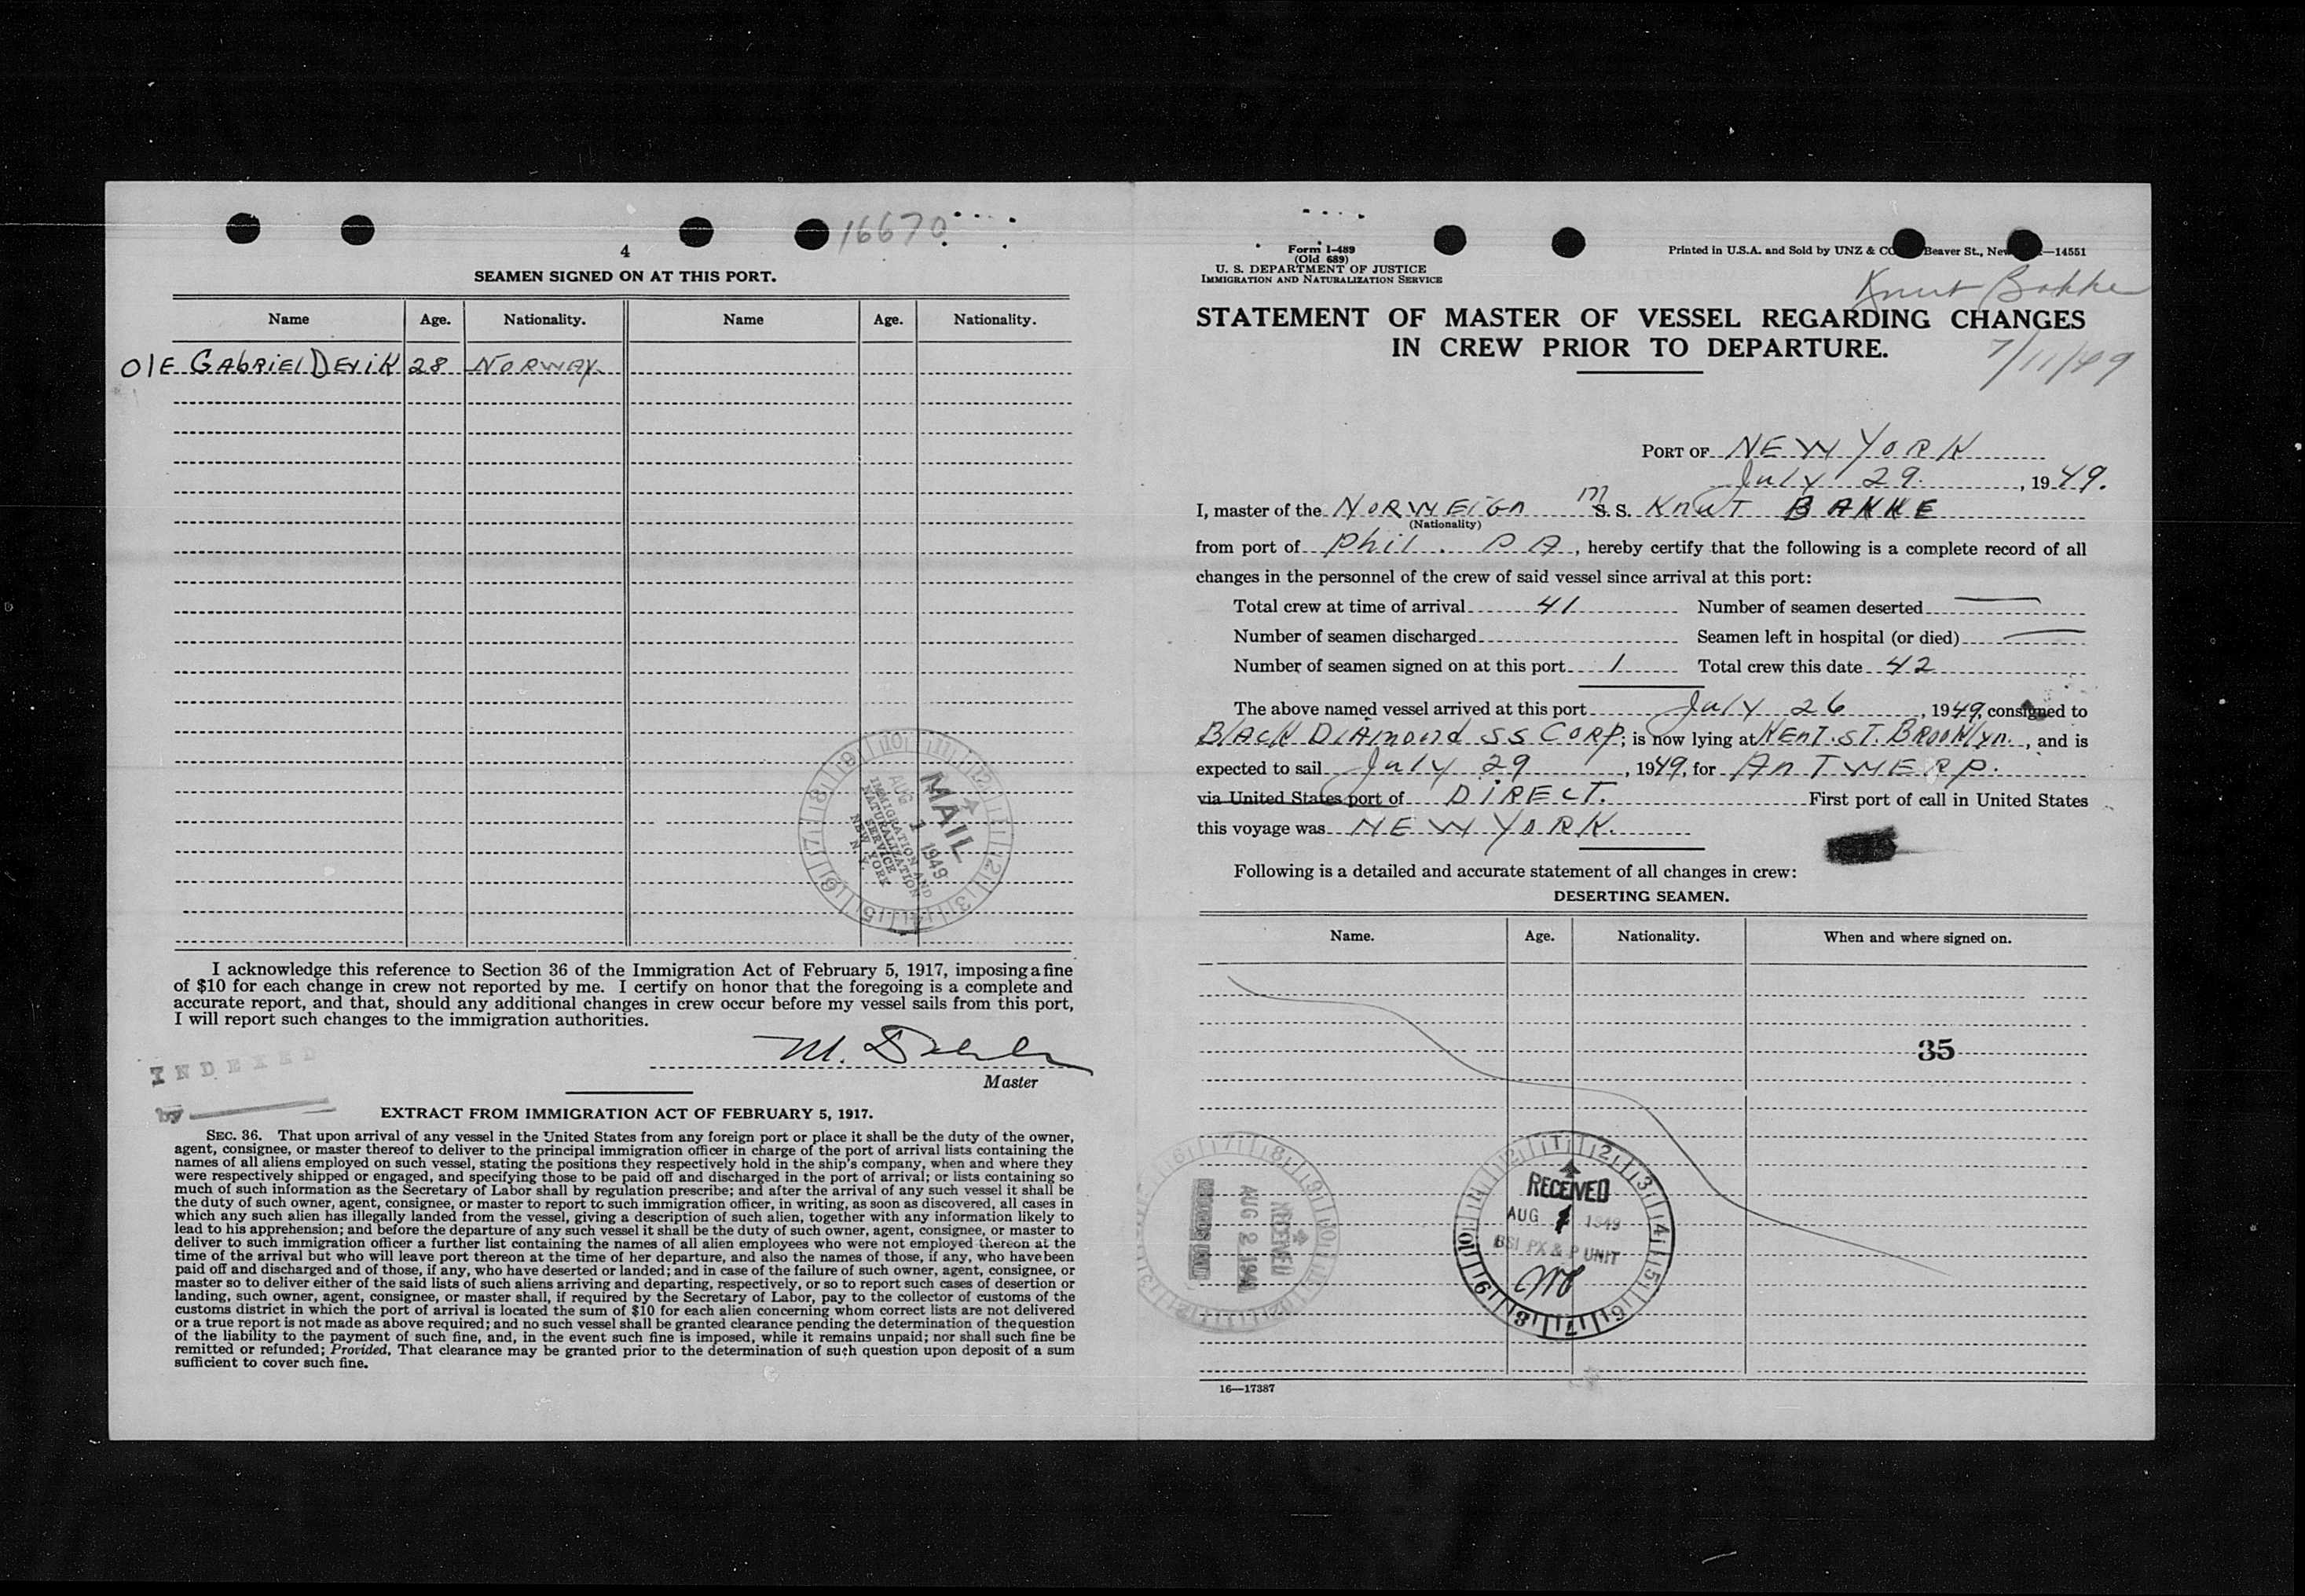 16670
4
SEAMEN SIGNED ON AT THIS PORT.
Name Age. Nationality. Name Age. Nationality.
OlE GAbRiEl DEViK 28 NORWAY
MAIL
AUG 1 1949
IMMIGRATION AND
NATURALIZATION
SERVICE
NEW YORK
N. Y.
I acknowledge this reference to Section 36 of the Immigration Act of February 5, 1917, imposing a fine
of $10 for each change in crew not reported by me. I certify on honor that the foregoing is a complete and
accurate report, and that, should any additional changes in crew occur before my vessel sails from this port,
I will report such changes to the immigration authorities.
M.
Master
INDEXED
by
EXTRACT FROM IMMIGRATION ACT OF FEBRUARY 5, 1917.
SEC. 36. That upon arrival of any vessel in the United States from any foreign port or place it shall be the duty of the owner,
agent, consignee, or master thereof to deliver to the principal immigration officer in charge of the port of arrival lists containing the
names of all aliens employed on such vessel, stating the positions they respectively hold in the ship's company, when and where they
were respectively shipped or engaged, and specifying those to be paid off and discharged in the port of arrival; or lists containing so
much of such information as the Secretary of Labor shall by regulation prescribe; and after the arrival of any such vessel it shall be
the duty of such owner, agent, consignee, or master to report to such immigration officer, in writing, as soon as discovered, all cases in
which any such alien has illegally landed from the vessel, giving a description of such alien, together with any information likely to
lead to his apprehension; and before the departure of any such vessel it shall be the duty of such owner, agent, consignee, or master to
deliver to such immigration officer a further list containing the names of all alien employees who were not employed thereon at the
time of the arrival but who will leave port thereon at the time of her departure, and also the names of those, if any, who have been
paid off and discharged and of those, if any, who have deserted or landed; and in case of the failure of such owner, agent, consignee, or
master so to deliver either of the said lists of such aliens arriving and departing, respectively, or so to report such cases of desertion or
landing, such owner, agent, consignee, or master shall, if required by the Secretary of Labor, pay to the collector of customs of the
customs district in which the port of arrival is located the sum of $10 for each alien concerning whom correct lists are not delivered
or a true report is not made as above required; and no such vessel shall be granted clearance pending the determination of the question
of the liability to the payment of such fine, and, in the event such fine is imposed, while it remains unpaid; nor shall such fine be
remitted or refunded; Provided, That clearance may be granted prior to the determination of such question upon deposit of a sum
sufficient to cover such fine.
Form I-489
(Old 689)
U. S. DEPARTMENT OF JUSTICE
IMMIGRATION AND NATURALIZATION SERVICE
Printed in U.S.A. and Sold by UNZ & CO Beaver St., New —14551
Knut Bakke
7/11/49
STATEMENT OF MASTER OF VESSEL REGARDING CHANGES
IN CREW PRIOR TO DEPARTURE.
PORT OF NEW YORK
July 29, 1949.
I, master of the NORWEIGn M S. S. KnuT BAKKE
(Nationality)
from port of Phil. PA, hereby certify that the following is a complete record of all
changes in the personnel of the crew of said vessel since arrival at this port:
Total crew at time of arrival 41 Number of seamen deserted —
Number of seamen discharged Seamen left in hospital (or died) —
Number of seamen signed on at this port 1 Total crew this date 42
The above named vessel arrived at this port July 26, 1949, consigned to
BlACK DIAmond SS CORP; is now lying at KEnT. ST. BROOKlyn., and is
expected to sail July 29, 1949, for AnTWERP.
via United States port of DIRECT. First port of call in United States
this voyage was NEW YORK.
Following is a detailed and accurate statement of all changes in crew:
DESERTING SEAMEN.
Name. Age. Nationality. When and where signed on.
35
RECEIVED
AUG 2 194
RECORDS UNIT
RECEIVED
AUG 1 1949
BSI PX & P UNIT
16—17387